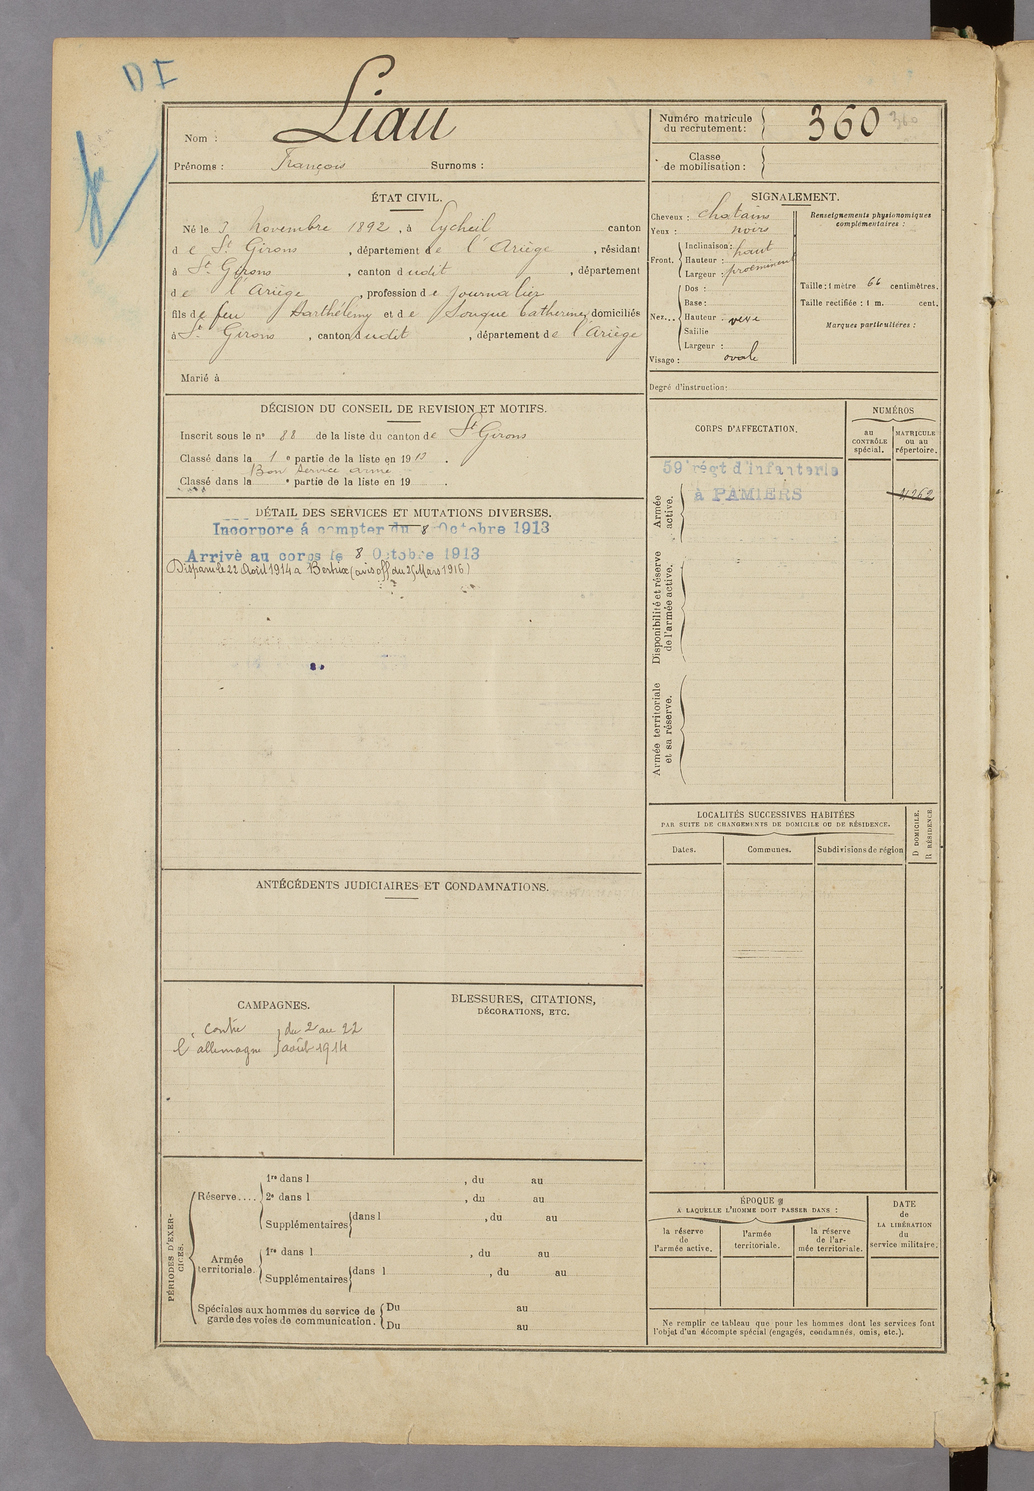 D I
Liau
Nom :
Prénoms : François Surnoms :
Numéro matricule
du recrutement : 360 360
Classe
de mobilisation :
ÉTAT CIVIL.
Né le 3 Novembre 1892, à Eycheil canton
de St Girons, département de l'Ariège, résidant
à St Girons, canton dudit, département
de l'Ariège, profession de journalier
fils de feu Barthélémy et de Souque Catherine, domiciliés
à St Girons, canton dudit, département de l'Ariège
Marié à
SIGNALEMENT.
Cheveux : chatains
Yeux : noirs
Front. Inclinaison : haut
Hauteur :
Largeur : proéminent
Nez... Dos :
Base :
Hauteur : vexe
Saillie
Largeur :
Visage : ovale
Renseignements physionomiques
complémentaires :
Taille : 1 mètre 66 centimètres.
Taille rectifiée : 1 m. cent.
Marques particulières :
Degré d'instruction :
DÉCISION DU CONSEIL DE REVISION ET MOTIFS.
Inscrit sous le n° 88 de la liste du canton de St Girons
Classé dans la 1e partie de la liste en 1913.
Bon service armé
Classé dans la e partie de la liste en 19 .
CORPS D'AFFECTATION.
NUMÉROS
au
CONTRÔLE
spécial.
MATRICULE
ou au
répertoire.
Armée
active.
59e régt d'infanterie
à PAMIERS
4262
Disponibilité et réserve
de l'armée active.
Armée territoriale
et sa réserve.
DÉTAIL DES SERVICES ET MUTATIONS DIVERSES.
Incorporé à compter du 8 Octobre 1913
Arrivé au corps le 8 Octobre 1913
Disparu le 22 Août 1914 à Bertrix (avis off. du 25 Mars 1916)
LOCALITÉS SUCCESSIVES HABITÉES
PAR SUITE DE CHANGEMENTS DE DOMICILE OU DE RÉSIDENCE.
Dates.
Communes.
Subdivisions de région
D DOMICILE.
R RÉSIDENCE
ANTÉCÉDENTS JUDICIAIRES ET CONDAMNATIONS.
CAMPAGNES.
contre du 2 au 22
l'allemagne août 1914
BLESSURES, CITATIONS,
DÉCORATIONS, ETC.
PÉRIODES D'EXER-
CICES.
Réserve....
1re dans l , du au
2e dans l , du au
Supplémentaires dans l , du au
Armée
territoriale.
1re dans l , du au
Supplémentaires dans l , du au
Spéciales aux hommes du service de
garde des voies de communication.
Du au
Du au
ÉPOQUE
À LAQUELLE L'HOMME DOIT PASSER DANS :
la réserve
de
l'armée active.
l'armée
territoriale.
la réserve
de l'ar-
mée territoriale.
DATE
de
LA LIBÉRATION
du
service militaire.
Ne remplir ce tableau que pour les hommes dont les services font
l'objet d'un décompte spécial (engagés, condamnés, omis, etc.).